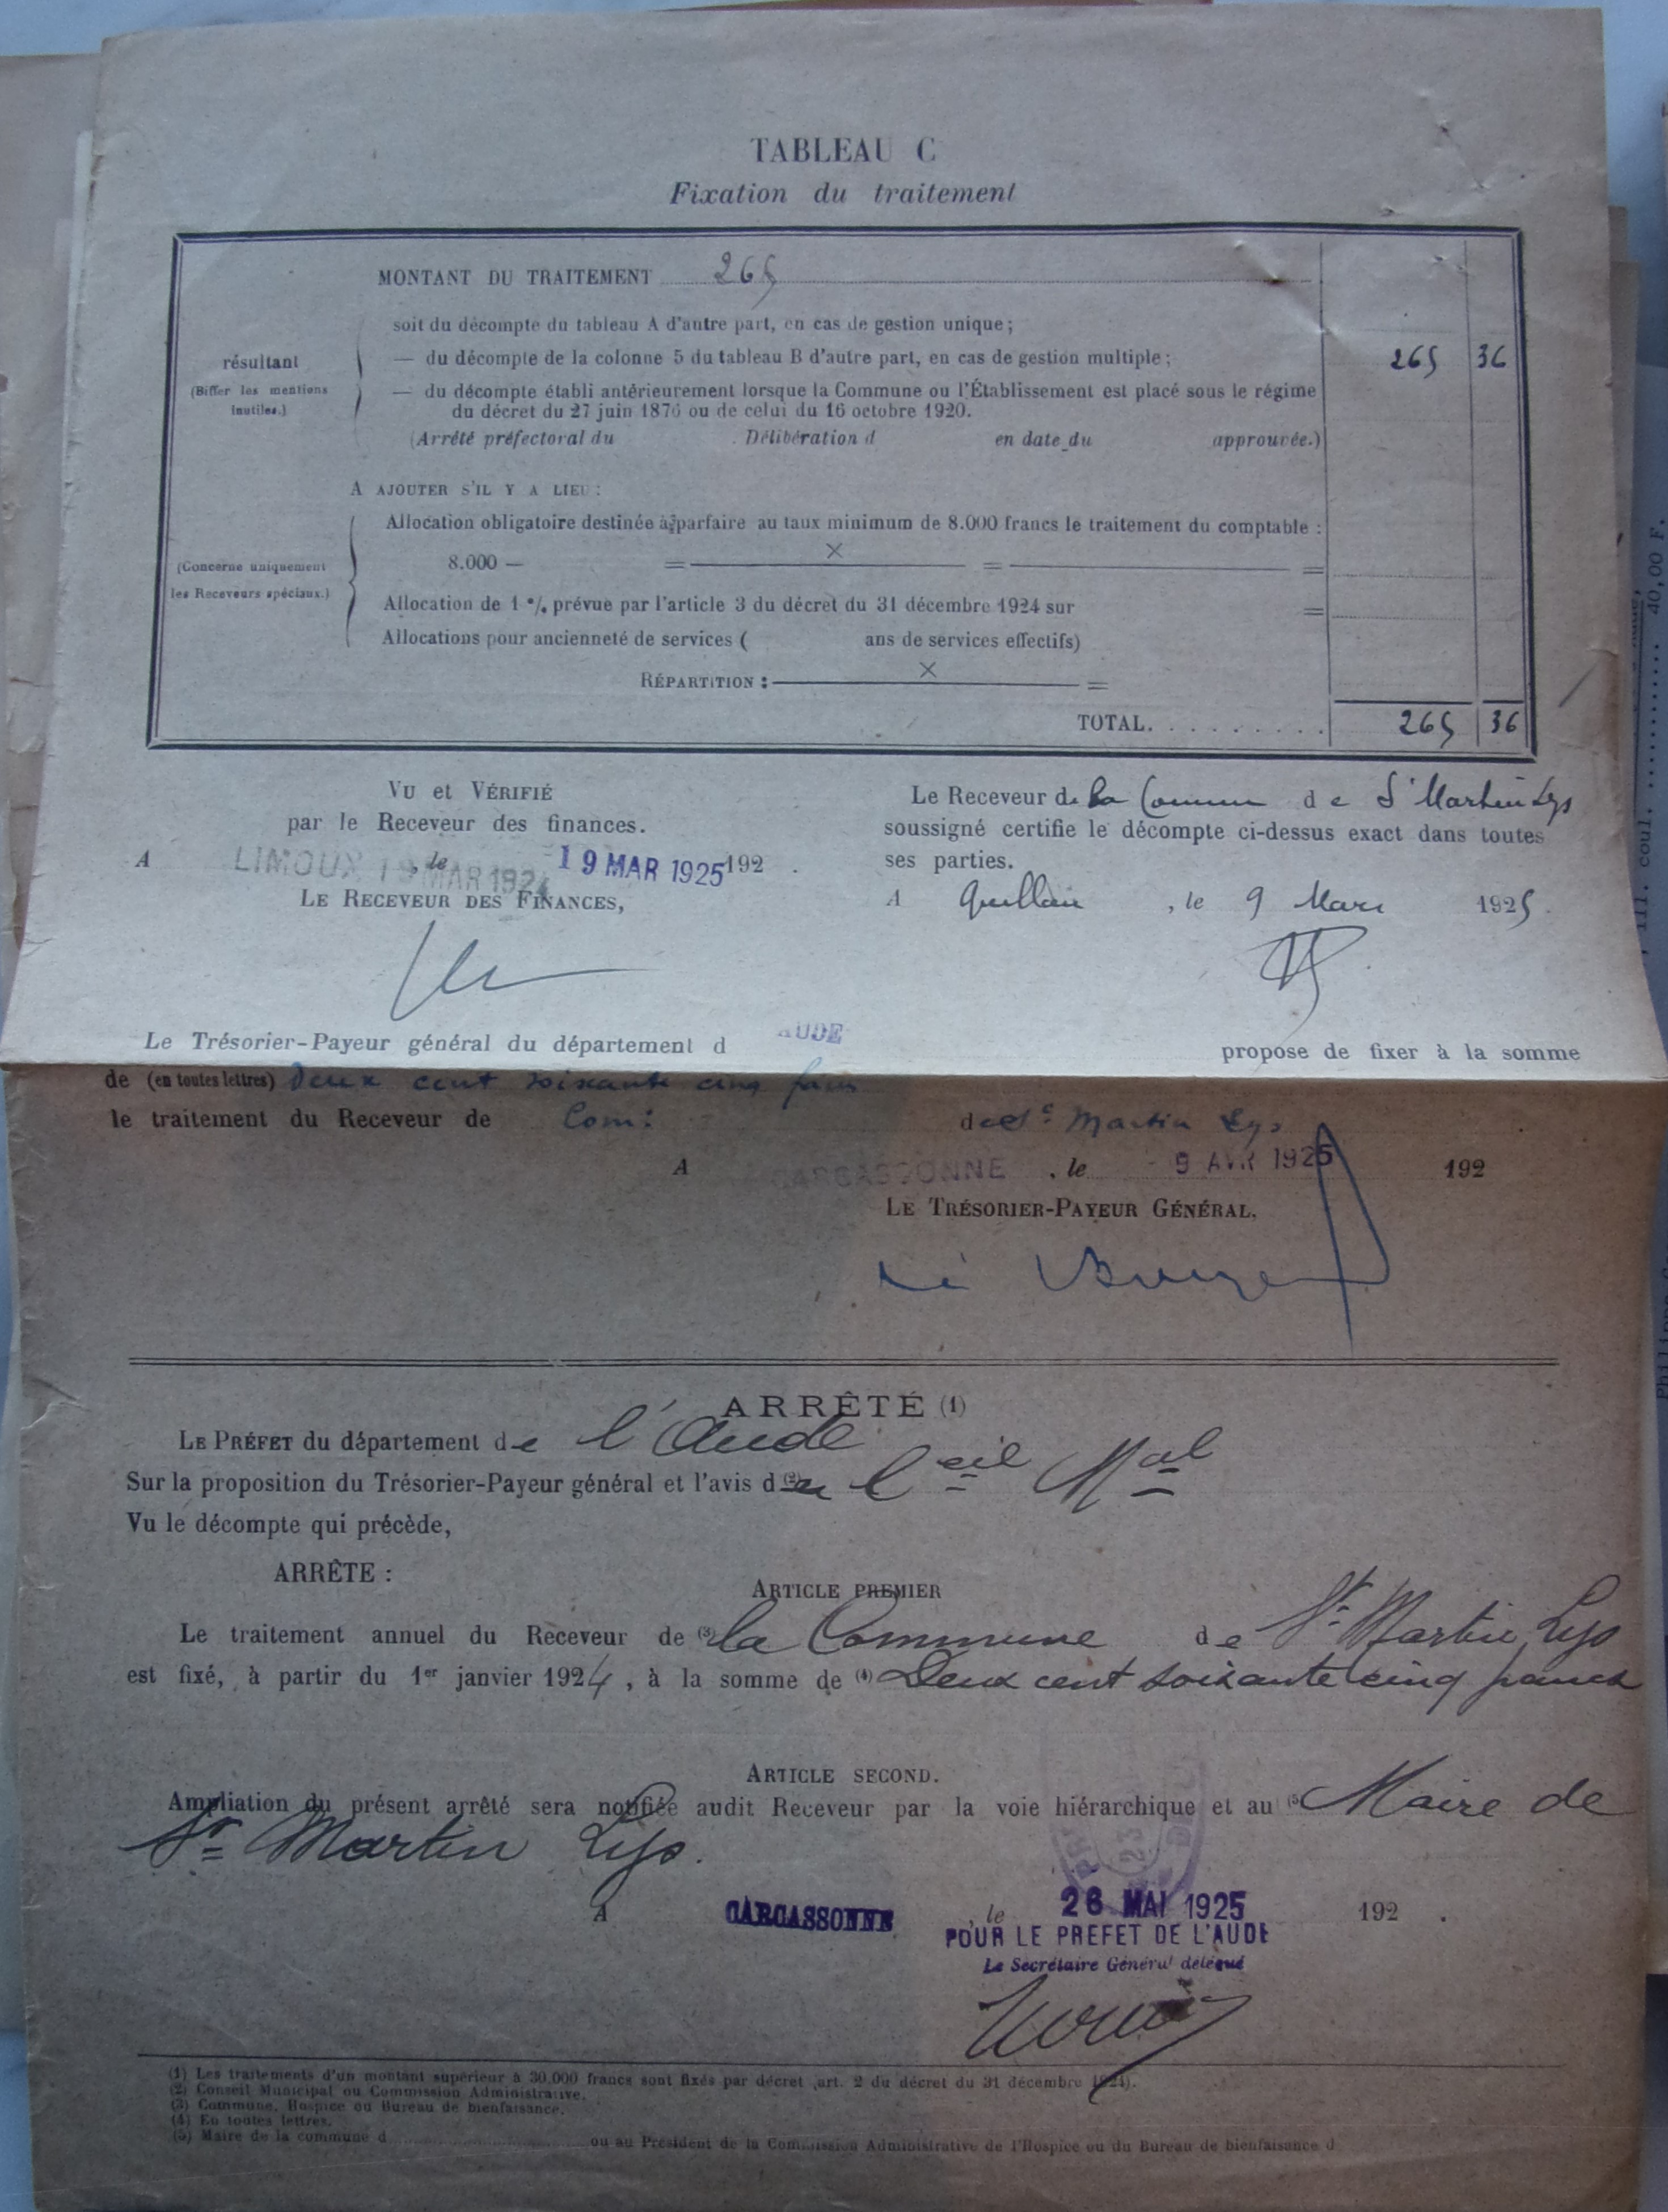 TABLEAU C
Fixation du traitement
MONTANT DU TRAITEMENT 265
soit du décompte du tableau A d'autre part, en cas de gestion unique;
résultant
(Biffer les mentions
inutiles.)
— du décompte de la colonne 5 du tableau B d'autre part, en cas de gestion multiple; 265 36
— du décompte établi antérieurement lorsque la Commune ou l'Établissement est placé sous le régime
du décret du 27 juin 1876 ou de celui du 16 octobre 1920.
(Arrêté préfectoral du . Délibération d en date du approuvée.)
A AJOUTER S'IL Y A LIEU :
(Concerne uniquement
les Receveurs spéciaux.)
Allocation obligatoire destinée à parfaire au taux minimum de 8.000 francs le traitement du comptable :
8.000 — = × = =
Allocation de 1 % prévue par l'article 3 du décret du 31 décembre 1924 sur =
Allocations pour ancienneté de services ( ans de services effectifs)
RÉPARTITION : × =
TOTAL. . . . . . . . . 265 36
VU et VÉRIFIÉ
par le Receveur des finances.
A LIMOUX 19 MAR 1924 , le 19 MAR 1925 192 .
LE RECEVEUR DES FINANCES,
Le Receveur de la Commune de St Martin Lys
soussigné certifie le décompte ci-dessus exact dans toutes
ses parties.
A Quillan , le 9 Mars 1925.
Le Trésorier-Payeur général du département d AUDE propose de fixer à la somme
de (en toutes lettres) Deux cent soixante cinq francs
le traitement du Receveur de Com: de St Martin Lys .
A CARCASSONNE , le - 9 AVR 1925 192
LE TRÉSORIER-PAYEUR GÉNÉRAL.
ARRÊTÉ (1)
LE PRÉFET du département de l'Aude
Sur la proposition du Trésorier-Payeur général et l'avis du (2) Ceil Mal
Vu le décompte qui précède,
ARRÊTE :
ARTICLE PREMIER
Le traitement annuel du Receveur de (3) la Commune de St Martin Lys
est fixé, à partir du 1er janvier 1924, à la somme de (4) Deux cent soixante cinq francs
ARTICLE SECOND.
Ampliation du présent arrêté sera notifiée audit Receveur par la voie hiérarchique et au (5) Maire de
St Martin Lys.
A CARCASSONNE , le 26 MAI 1925 192 .
POUR LE PREFET DE L'AUDE
Le Secrétaire Général délégué
(1) Les traitements d'un montant supérieur à 30.000 francs sont fixés par décret (art. 2 du décret du 31 décembre 1924).
(2) Conseil Municipal ou Commission Administrative.
(3) Commune, Hospice ou Bureau de bienfaisance.
(4) En toutes lettres.
(5) Maire de la commune d ou au Président de la Commission Administrative de l'Hospice ou du Bureau de bienfaisance d